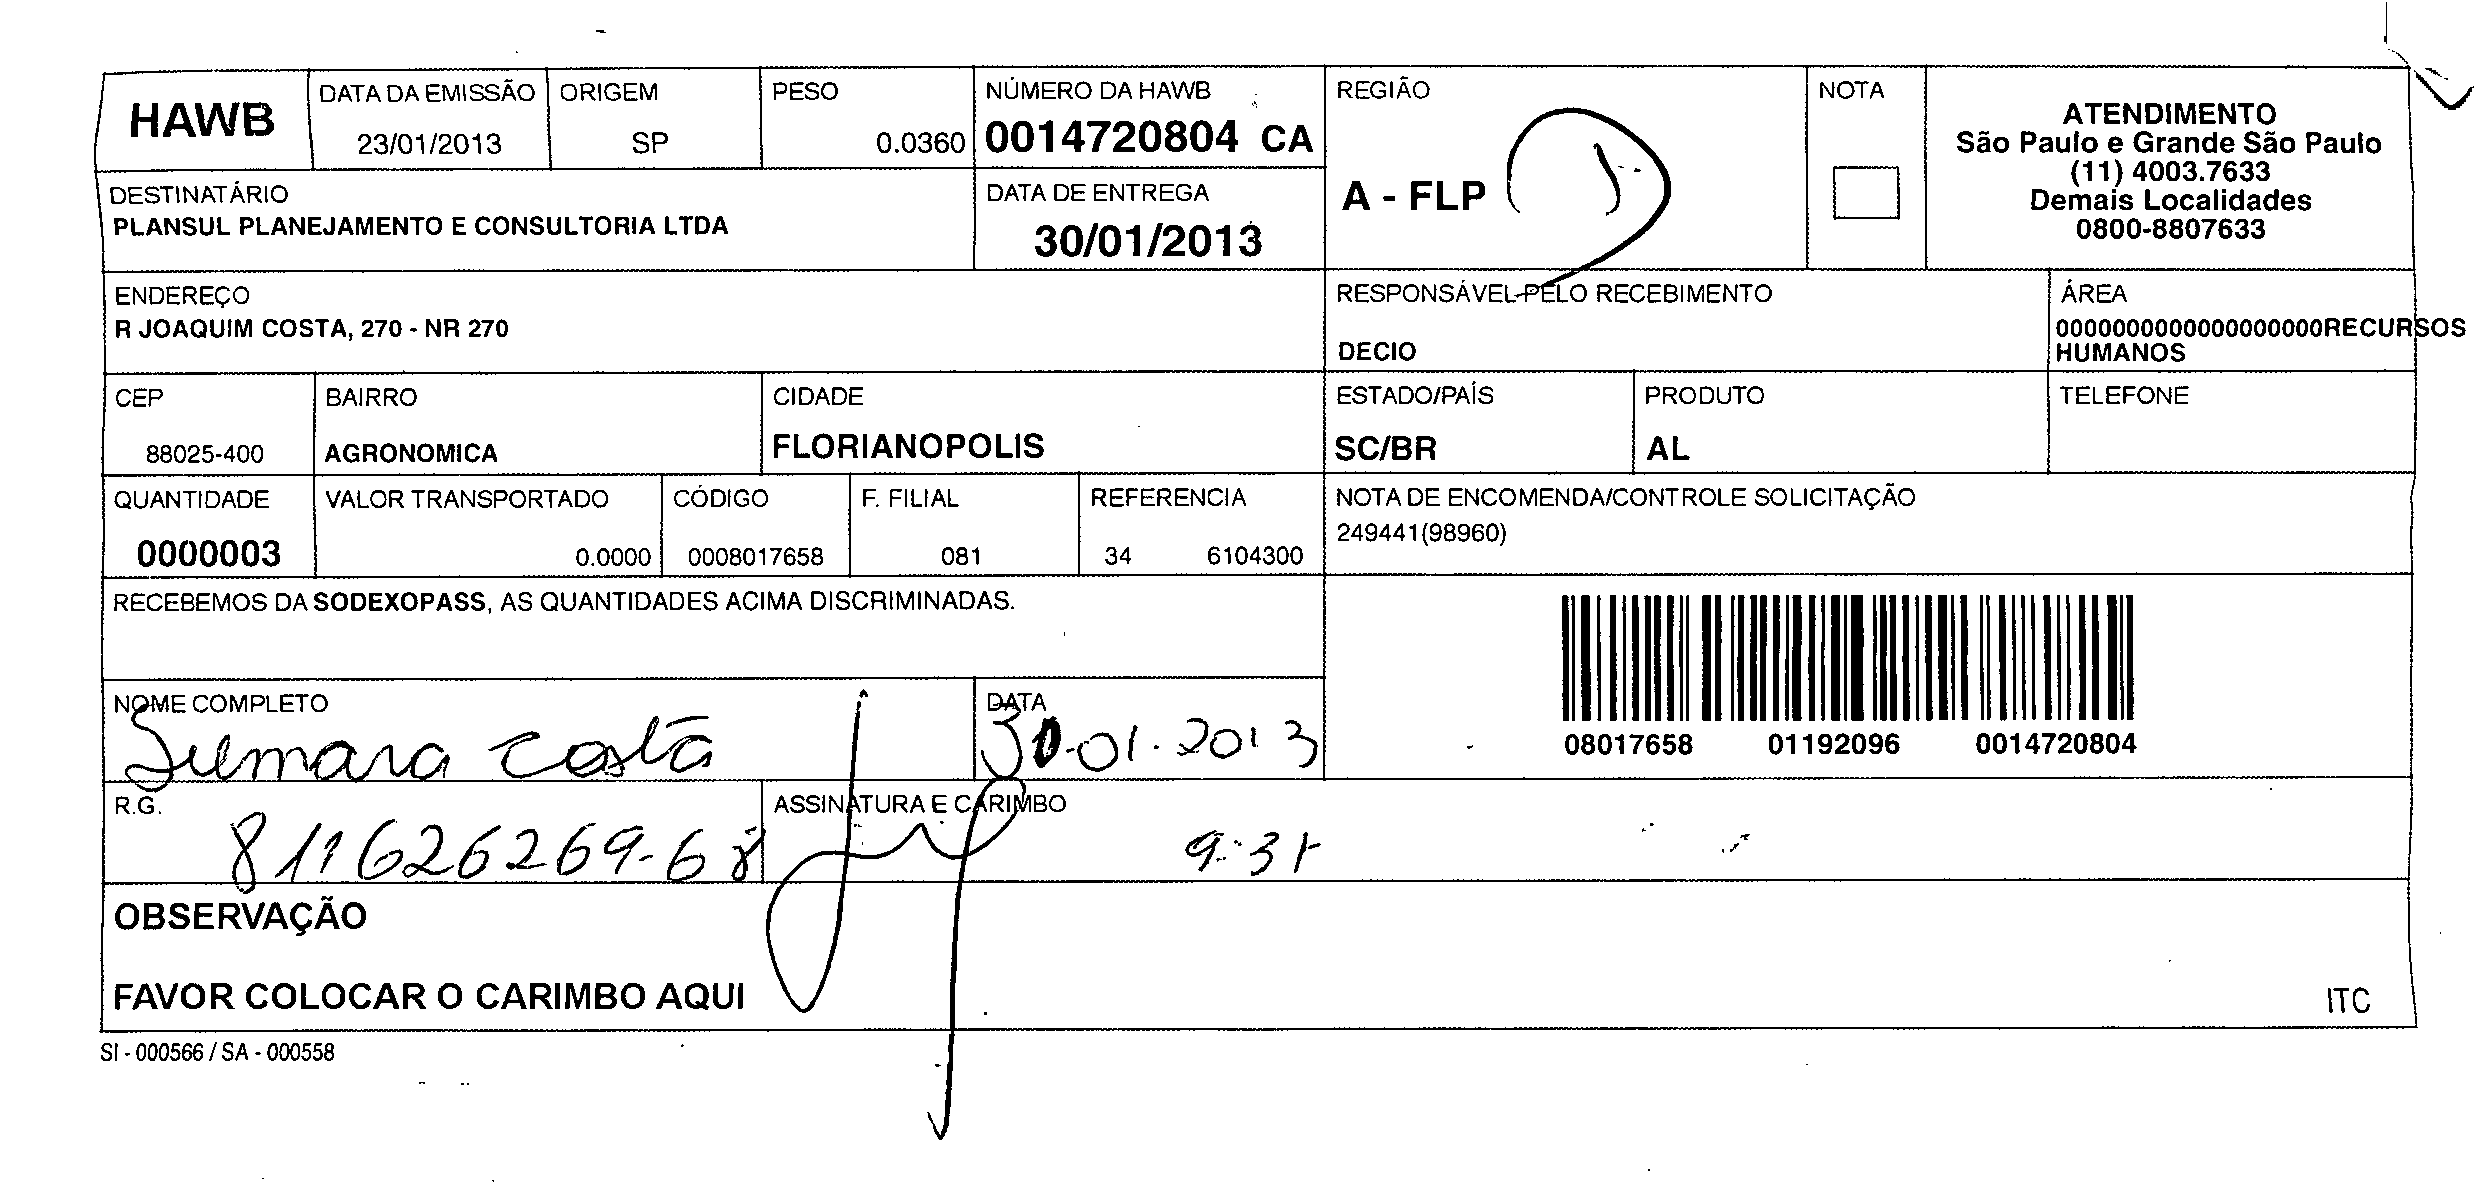 HAWB
DATA DA EMISSÃO
23/01/2013
ORIGEM
SP
PESO
0.0360
NÚMERO DA HAWB
0014720804 CA
REGIÃO
A - FLP
NOTA
ATENDIMENTO
São Paulo e Grande São Paulo
(11) 4003.7633
Demais Localidades
0800-8807633
DESTINATÁRIO
PLANSUL PLANEJAMENTO E CONSULTORIA LTDA
DATA DE ENTREGA
30/01/2013
ENDEREÇO
R JOAQUIM COSTA, 270 - NR 270
RESPONSÁVEL PELO RECEBIMENTO
DECIO
ÁREA
0000000000000000000RECURSOS
HUMANOS
CEP
88025-400
BAIRRO
AGRONOMICA
CIDADE
FLORIANOPOLIS
ESTADO/PAÍS
SC/BR
PRODUTO
AL
TELEFONE
QUANTIDADE
0000003
VALOR TRANSPORTADO
0.0000
CÓDIGO
0008017658
F. FILIAL
081
REFERENCIA
34 6104300
NOTA DE ENCOMENDA/CONTROLE SOLICITAÇÃO
249441(98960)
RECEBEMOS DA SODEXOPASS, AS QUANTIDADES ACIMA DISCRIMINADAS.
08017658 01192096 0014720804
NOME COMPLETO
costa
DATA
30.01.2013
R.G.
811626269-68
ASSINATURA E CARIMBO
OBSERVAÇÃO
FAVOR COLOCAR O CARIMBO AQUI
ITC
SI - 000566 / SA - 000558